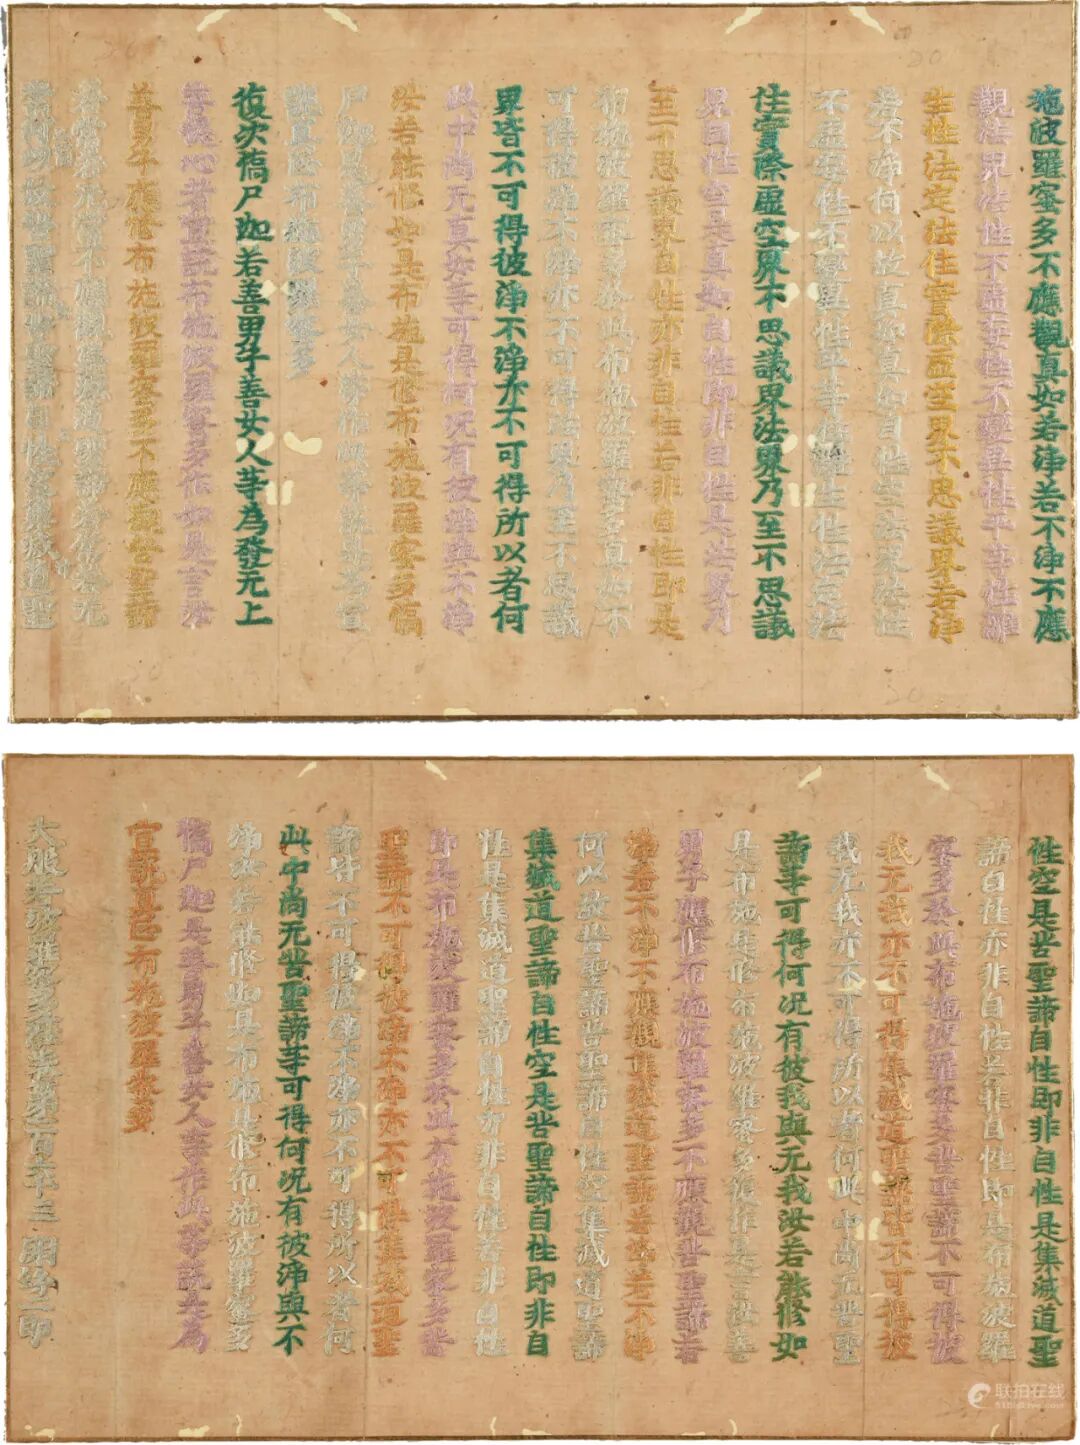 施波羅蜜多不應觀真如若淨若不淨不應
觀法界法性不虛妄性不變異性平等性離
生性法定法住實際虛空界不思議界若淨
若不淨何以故真如真如自性空法界法性
不虛妄性不變異性平等性離生性法定法
住實際虛空界不思議界法界乃至不思議
界自性空是真如自性即非自性是法界乃
至不思議界自性亦非自性若非自性即是
布施波羅蜜多於此布施波羅蜜多真如不
可得彼淨不淨亦不可得法界乃至不思議
界皆不可得彼淨不淨亦不可得所以者何
此中尚无真如等可得何況有彼淨與不淨
汝若能修如是布施是修布施波羅蜜多憍
尸迦是善男子善女人等作此等說是為宣
說真正布施波羅蜜多
復次憍尸迦若善男子善女人等為發无上
菩提心者宣說布施波羅蜜多作如是言汝
善男子應修布施波羅蜜多不應觀苦聖諦
若常若无常不應觀集滅道聖諦若常若无
常何以故苦聖諦苦聖諦自性空集滅道聖
性空是苦聖諦自性即非自性是集滅道聖
諦自性亦非自性若非自性即是布施波羅
蜜多於此布施波羅蜜多苦聖諦不可得彼
我无我亦不可得集滅道聖諦皆不可得彼
我无我亦不可得所以者何此中尚无苦聖
諦等可得何況有彼我與无我汝若能修如
是布施是修布施波羅蜜多復作是言汝善
男子應修布施波羅蜜多不應觀苦聖諦若
淨若不淨不應觀集滅道聖諦若淨若不淨
何以故苦聖諦苦聖諦自性空集滅道聖諦
集滅道聖諦自性空是苦聖諦自性即非自
性是集滅道聖諦自性亦非自性若非自性
即是布施波羅蜜多於此布施波羅蜜多苦
聖諦不可得彼淨不淨亦不可得集滅道聖
諦皆不可得彼淨不淨亦不可得所以者何
此中尚无苦聖諦等可得何況有彼淨與不
淨汝若能修如是布施是修布施波羅蜜多
憍尸迦是善男子善女人等作此等說是為
宣說真正布施波羅蜜多
大般若波羅蜜多經卷第一百六十三
联拍在线